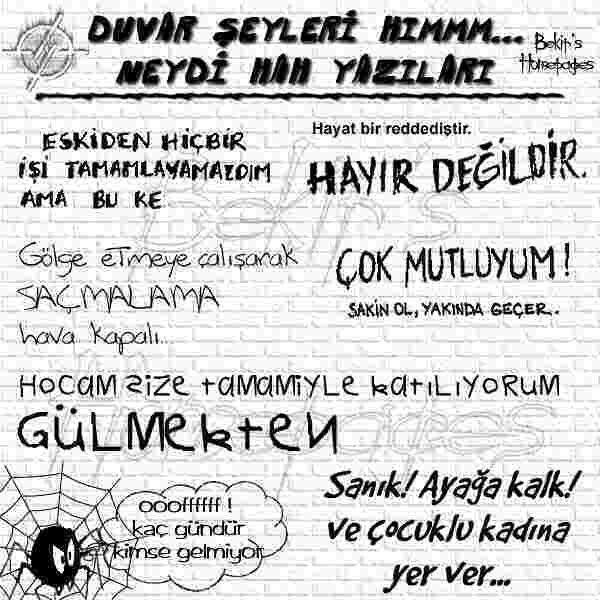 DUVAR ŞEYLERİ HIMMM...
NEYDİ HAH YAZILARI
Bekir's
Homepages
ESKİDEN HİÇBİR
İŞİ TAMAMLAYAMAZDIM
AMA BU KE
Hayat bir reddediştir.
HAYIR DEĞİLDİR.
Gölge etmeye çalışarak
SAÇMALAMA
hava kapalı...
ÇOK MUTLUYUM!
SAKİN OL, YAKINDA GEÇER.
HOCAM SİZE tAMAMİYLE KAtILIYORUM
GÜLMEKtEN
ooofffff !
kaç gündür
kimse gelmiyor
Sanık! Ayağa kalk!
Ve çocuklu kadına
yer ver...
Bekir's
Homepages